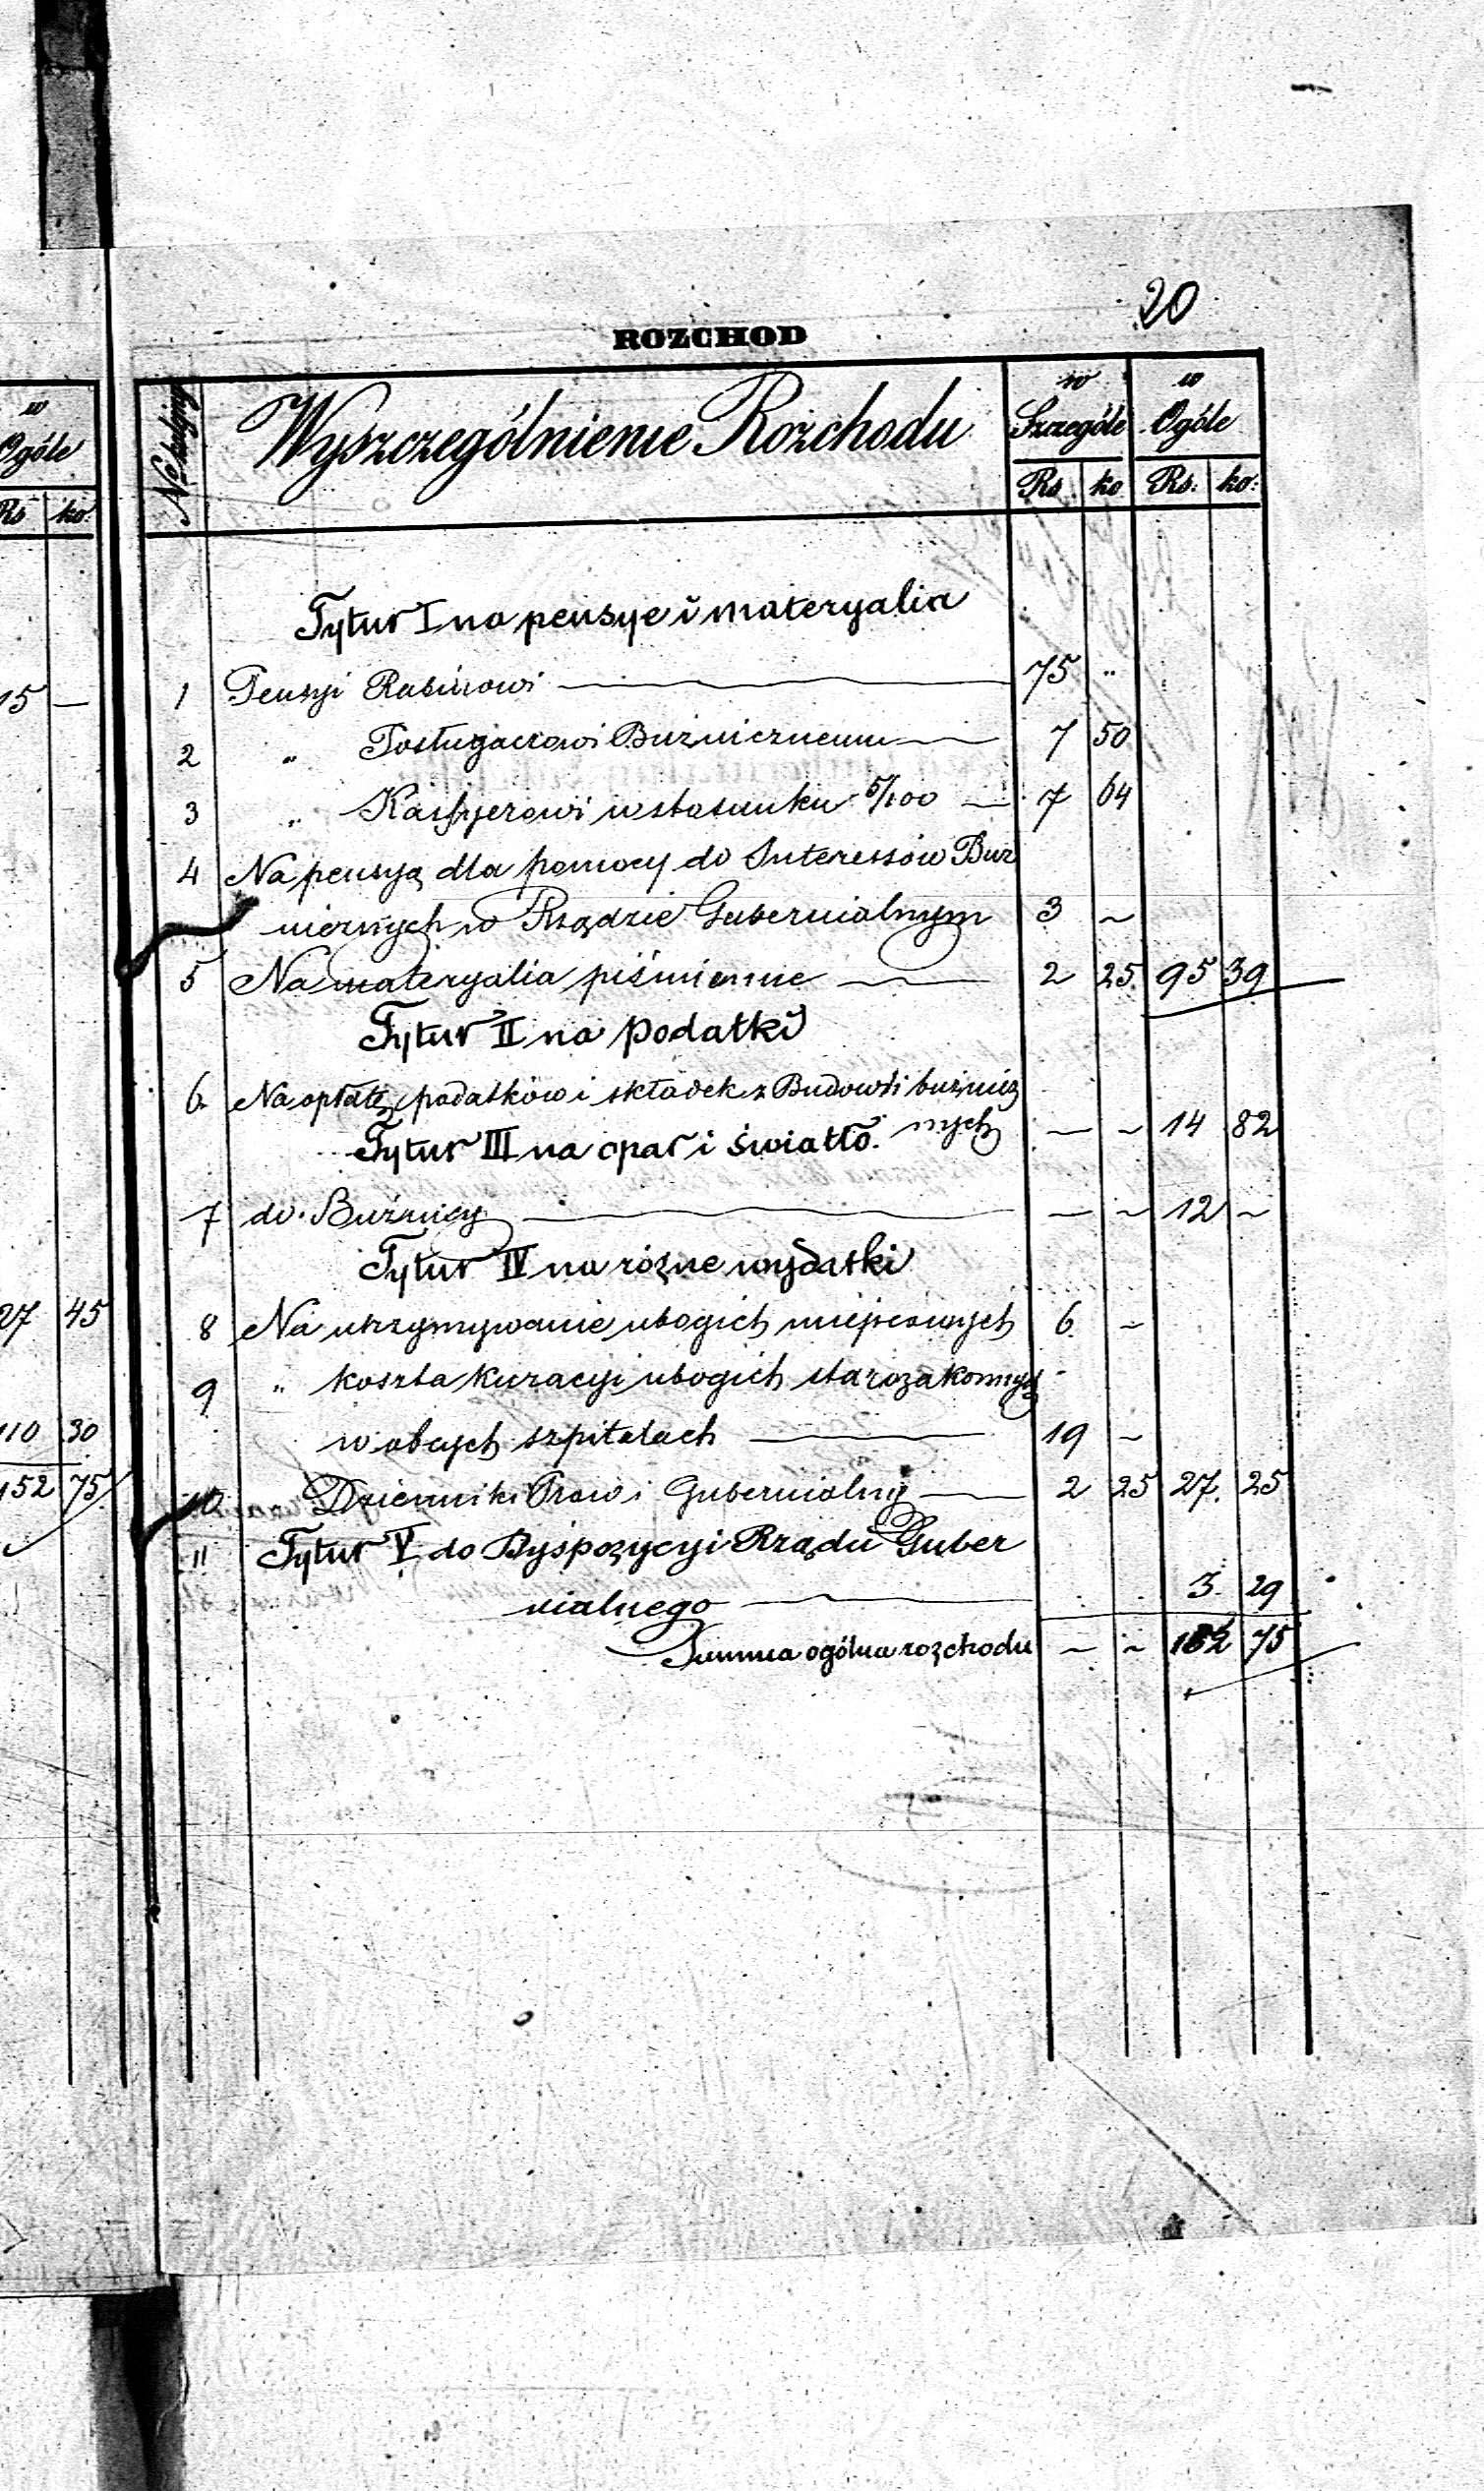 20
ROZCHOD
w Ogóle
Rs ko:
15 —
27 45
110 30
152 75
No kolejny Wyszczególnienie Rozchodu w Szczególe w Ogóle
Rs ko Rs. ko:
Tytuł I na pensye i materyalia
1 Pensyi Rabinowi — 75 "
2 " Posługaczowi Bużnicznemu — 7 50
3 " Kassyerowi w stosunku 5/100 — 7 64
4 Na pensyą dla pomocy do Interessów Buż
nicznych w Rządzie Gubernialnym 3 ~
5 Na materyalia piśmienne — 2 25. 95 39
Tytuł II na podatki
6. Na opłatę podatków i składek z Budowli bużnicz
nych — ~ 14 82
Tytuł III na opał i światło.
7 do Bużnicy — — ~ 12 ~
Tytuł IV na różne wydatki
8 Na utrzymywanie ubogich miejscowych 6. ~
9 " koszta kuracyi ubogich starozakonnych
w obcych szpitalach — 19 ~
10 Dzienniki Praw i Gubernialny — 2 25 27. 25
11 Tytuł V do Dyspozycyi Rządu Guber
nialnego — 3. 29
Summa ogólna rozchodu ~ ~ 152 75